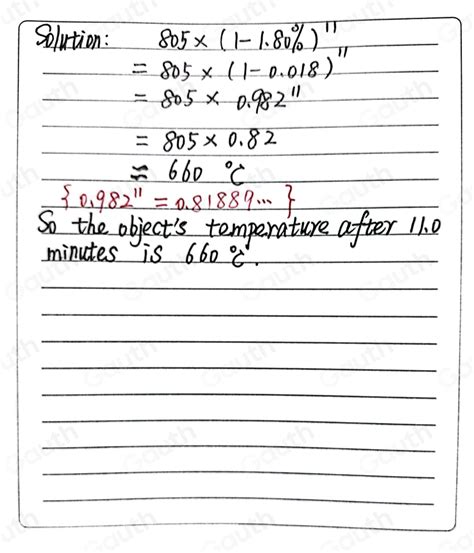 Solution: 805 × (1-1.80%)¹¹
= 805 × (1-0.018)¹¹
= 805 × 0.982¹¹
= 805 × 0.82
≈ 660 °C
{0.982¹¹ = 0.81889...}
So the object's temperature after 11.0
minutes is 660 °C.